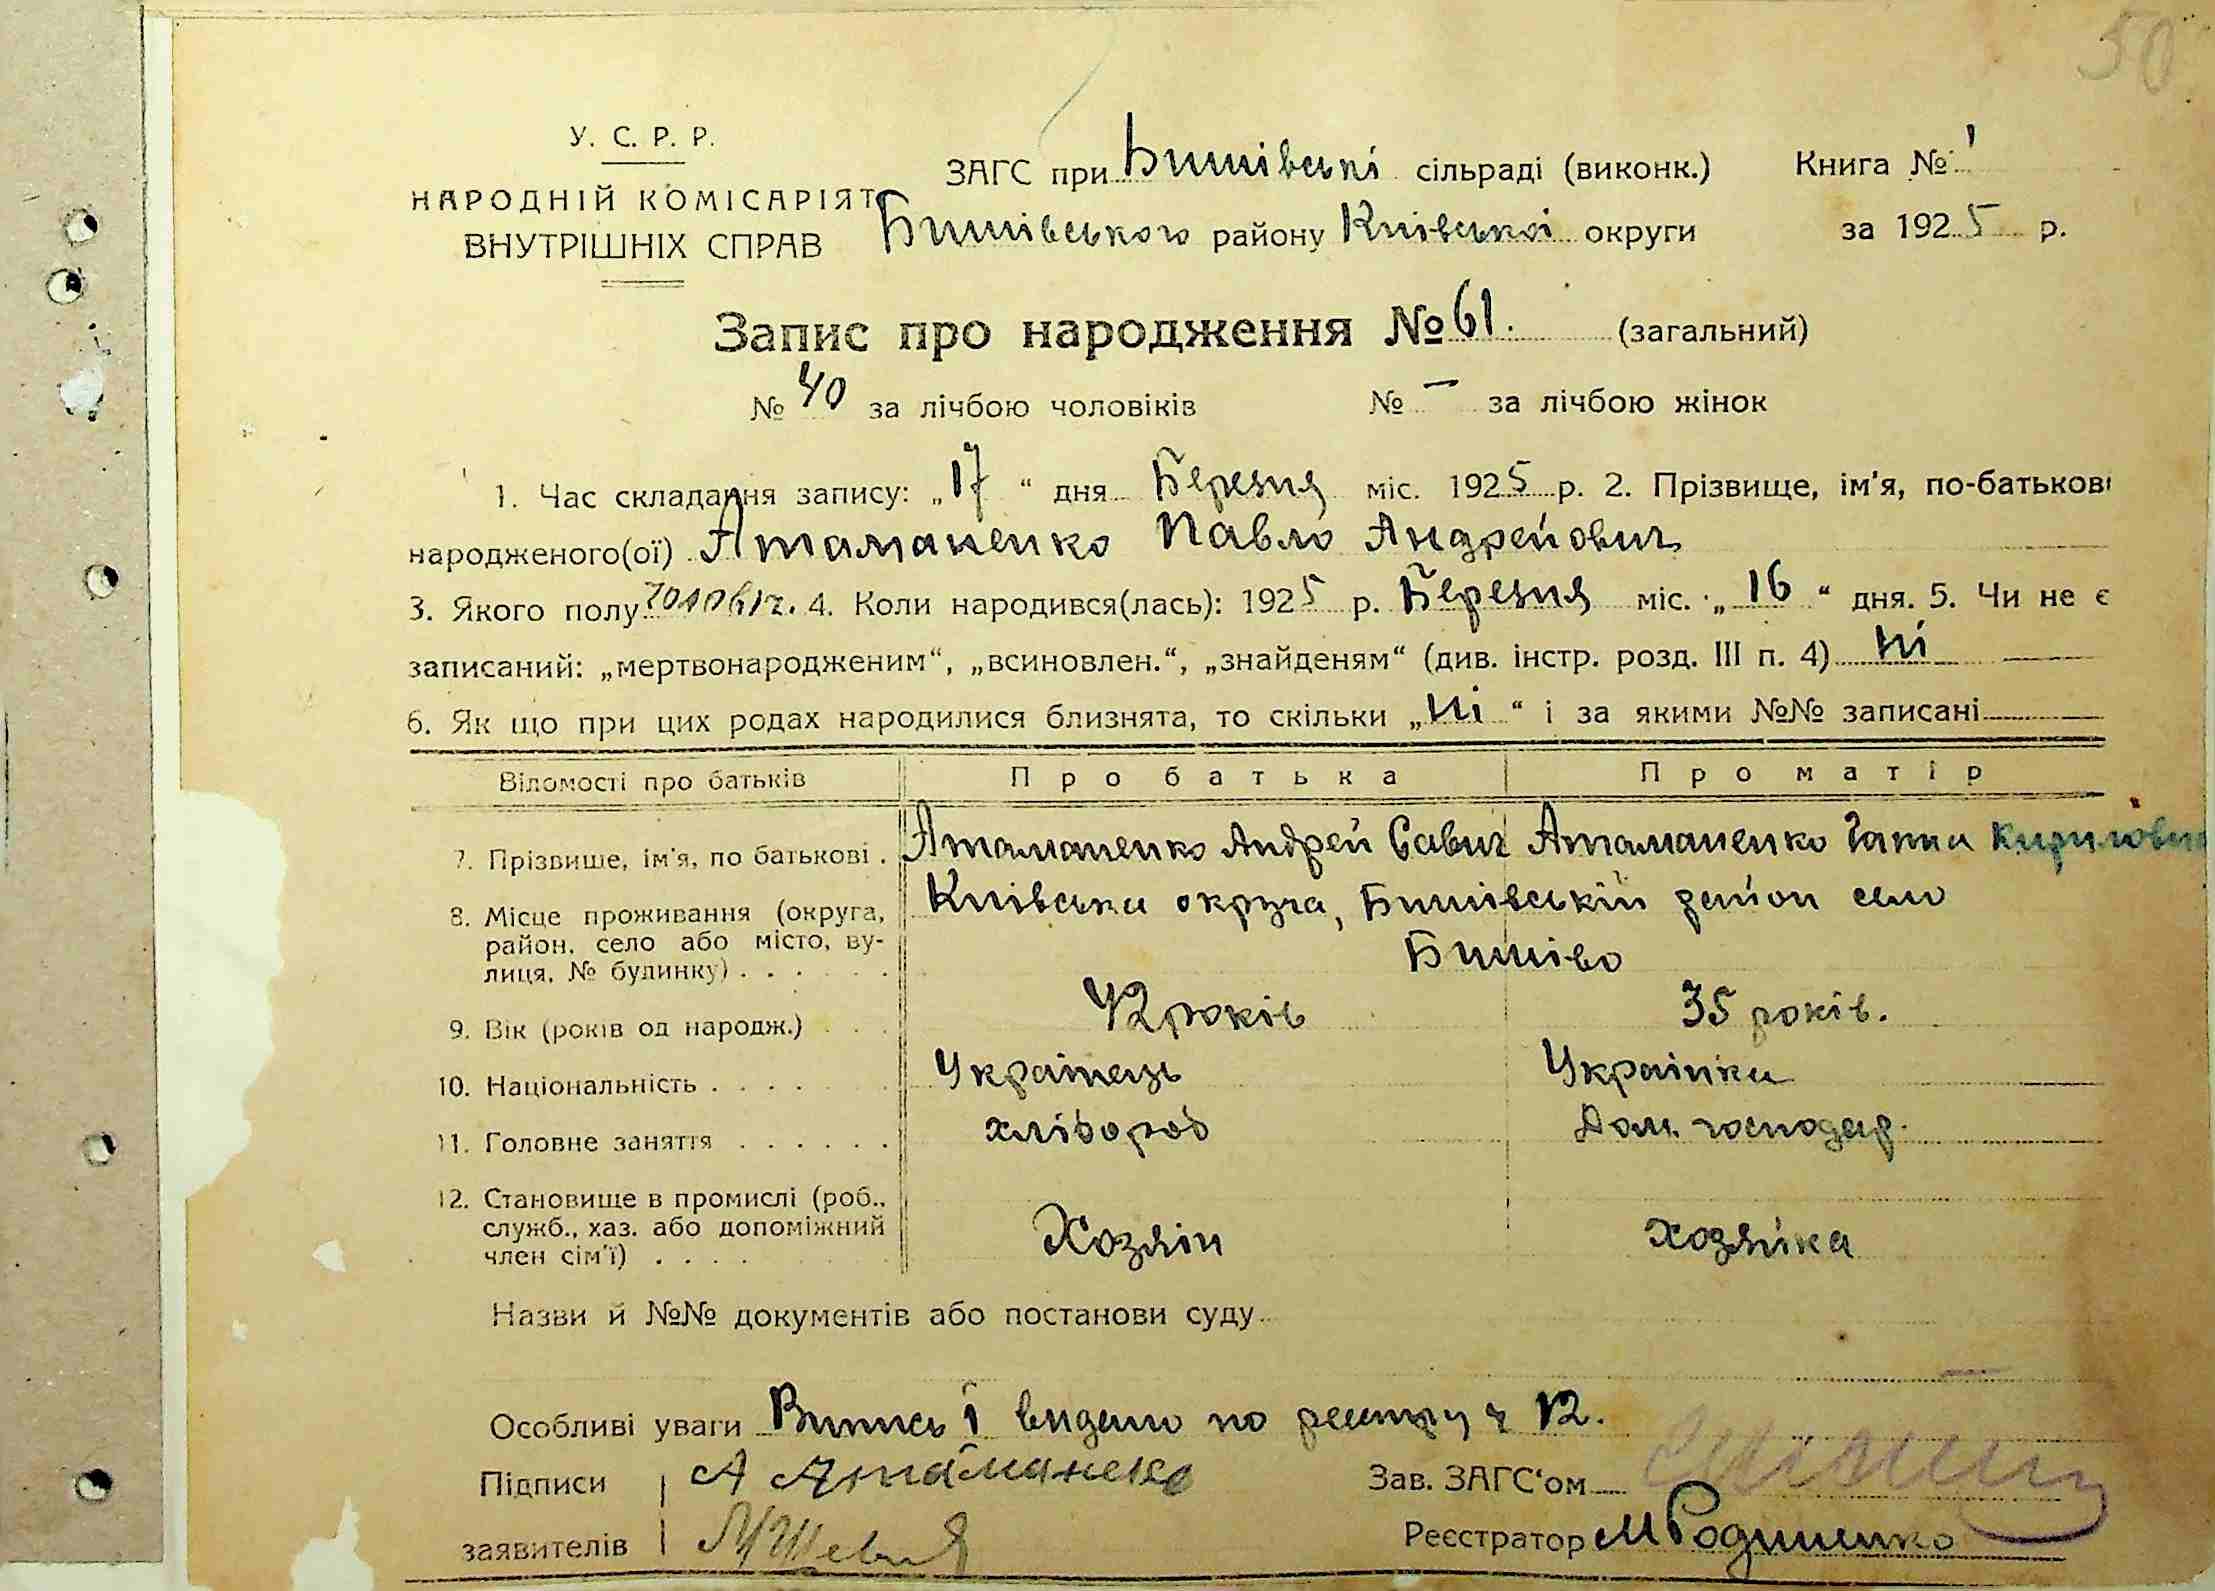 50
У. С. Р. Р.
НАРОДНІЙ КОМІСАРІЯТ
ВНУТРІШНІХ СПРАВ
ЗАГС при Бишівські сільраді (виконк.) Книга № 1
Бишівського району Київської округи за 1925 р.
Запис про народження № 61. (загальний)
№ 40 за лічбою чоловіків № — за лічбою жінок
1. Час складання запису: „17“ дня Березня міс. 1925 р. 2. Прізвище, ім'я, по-батькові
народженого(ої) Атаманенко Павло Андрейович
3. Якого полу чоловіч. 4. Коли народився(лась): 1925 р. Березня міс. „16“ дня. 5. Чи не є
записаний: „мертвонародженим“, „всиновлен.“, „знайденям“ (див. інстр. розд. III п. 4) Ні
6. Як що при цих родах народилися близнята, то скільки „Ні“ і за якими №№ записані
Відомості про батьків Про батька Про матір
7. Прізвище, ім'я, по батькові . Атаманенко Андрей Савич Атаманенко Ганна Кириловна
8. Місце проживання (округа, Київська округа, Бишівській район село
район, село або місто, ву-
лиця, № будинку) . . . . . Бишіво
9. Вік (років од народж.) . . . 42 років 35 років.
10. Національність . . . . . . Українець Українка
11. Головне заняття . . . . . . хлібороб Дом. господар.
12. Становище в промислі (роб.,
служб., хаз. або допоміжний Хозяін хозяйка
член сім'ї) . . . .
Назви й №№ документів або постанови суду
Особливі уваги Випись і видано по реестру ч 12.
Підписи А Атаманенко Зав. ЗАГС'ом
заявителів Реєстратор М Родишенко